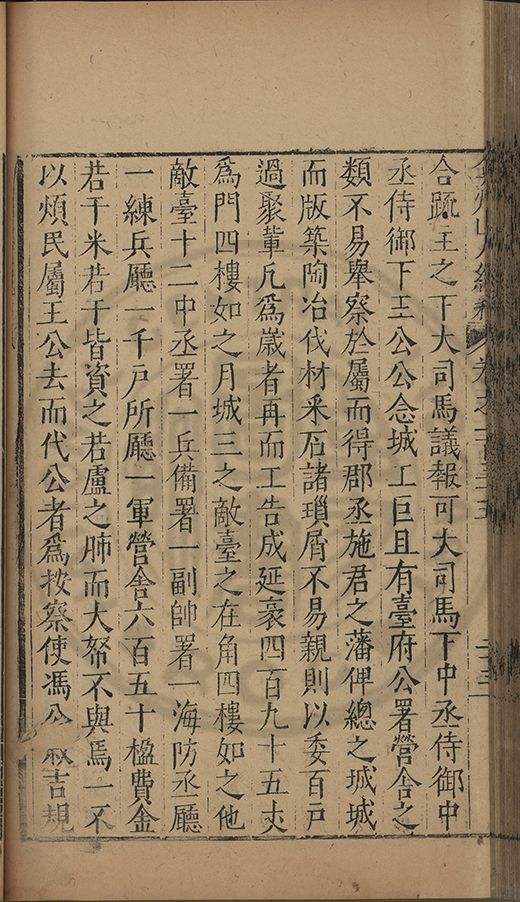 合疏王之下大司馬議報可大司馬下中丞侍御中
丞侍御下王公公念城工巨且有臺府公署營舍之
類不易舉察於屬而得郡丞施君之藩俾總之城城
而版築陶冶伐材采石諸瑣屑不易親則以委百戶
過聚輩凡爲歲者再而工告成延袤四百九十五丈
爲門四樓如之月城三之敵臺之在角四樓如之他
敵臺十二中丞署一兵備署一副帥署一海防丞廳
一練兵廳一千戶所廳一軍營舍六百五十楹費金
若干米若干皆資之若盧之肺而大帑不與焉一不
以煩民屬王公去而代公者爲按察使馮公叔吉規